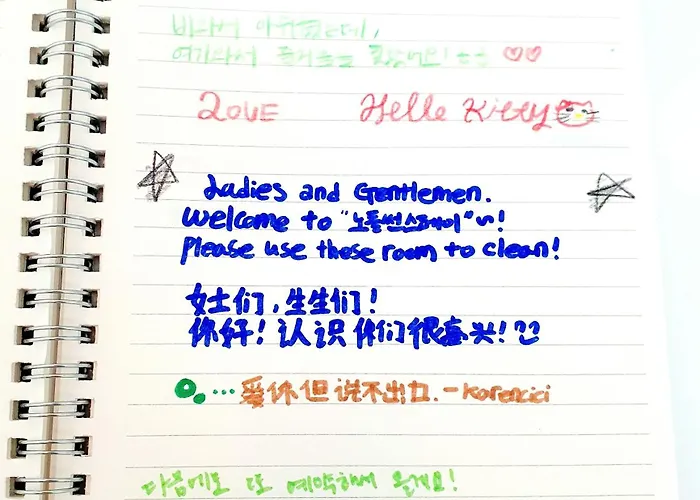 비와서 아쉬웠는데,
여기와서 좋았어요! ♡♡
LOVE Hello Kitty
Ladies and Gentlemen.
Welcome to "" ~!
Please use those room to clean!
女士们,生生们!
你好! 认识你们很高兴!
... 爱你但说不出口. - Karencici
다음에도 또 예약해서 올게요!